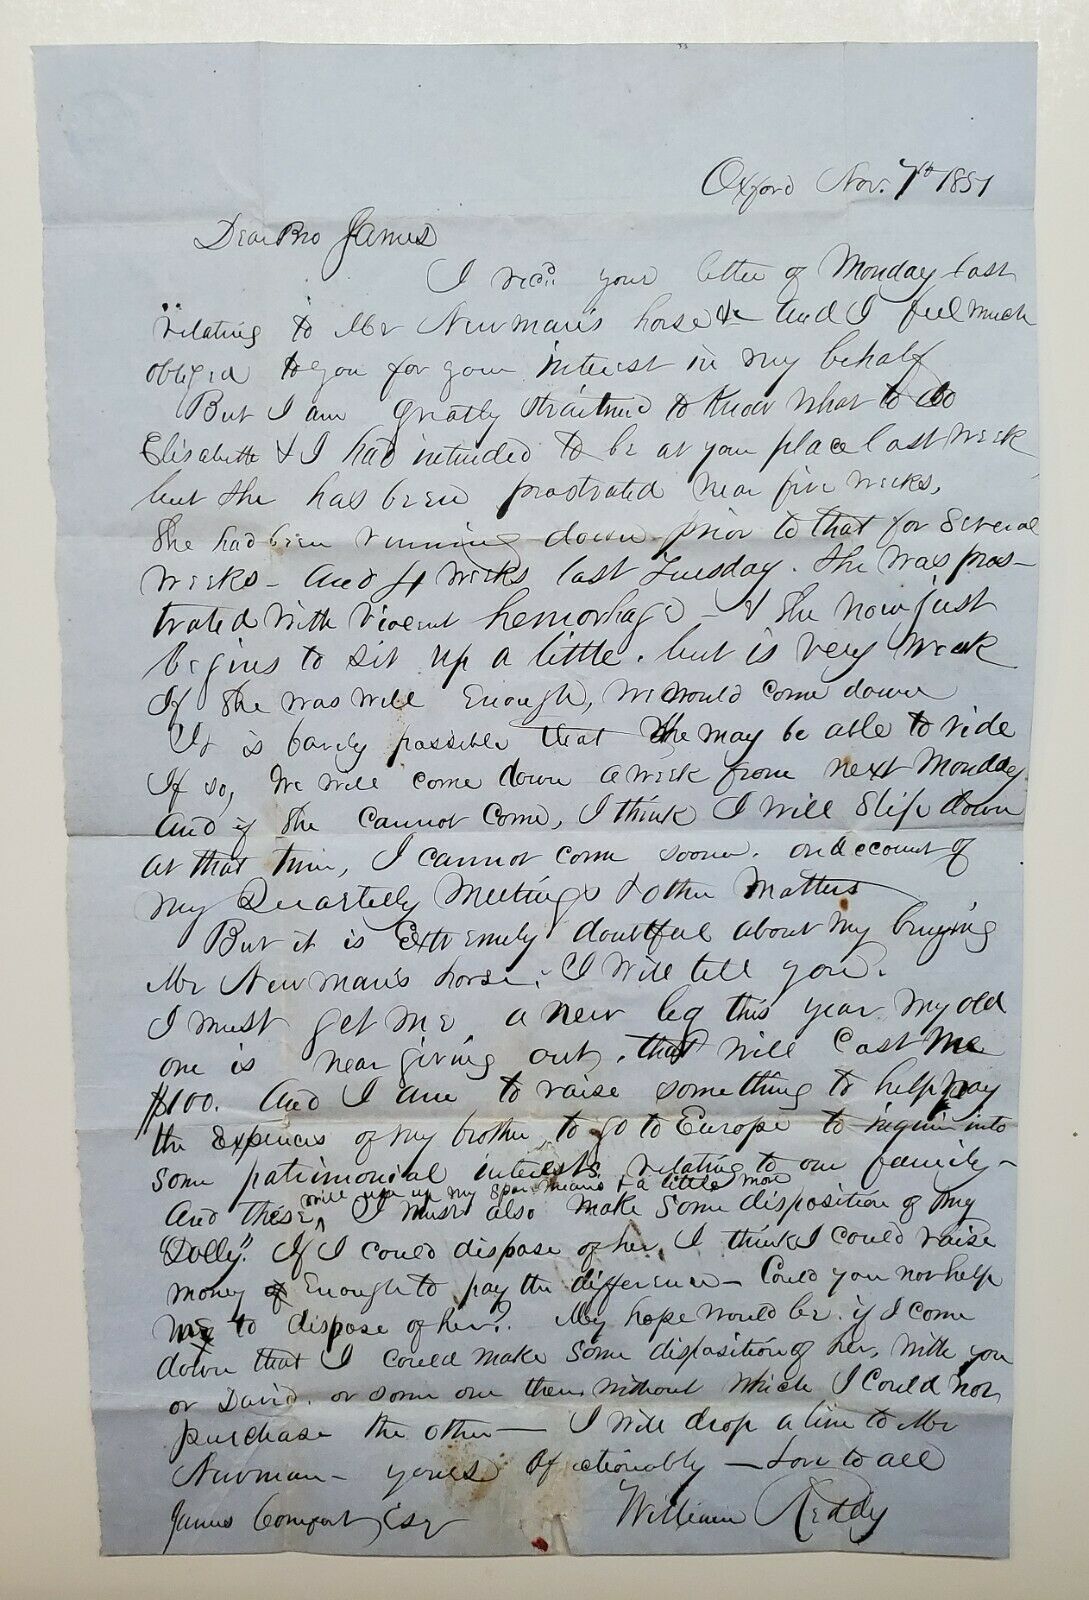 Oxford Nov. 7th 1851
Dear Bro James
I recd. your letter of Monday last
relating to Mr Newman's horse &c And I feel much
obliged to you for your interest in my behalf
But I am greatly straitned to know what to do
Elisabeth & I had intended to be at your place last week
but she has been prostrated near five weeks,
She had been running down prior to that for several
weeks - And 4 weeks last Tuesday. She was pros-
trated with violent hemorhage - & she now just
begins to sit up a little. but is very weak
If she was well enough, we would come down
It is barely possible that she may be able to ride
If so, we will come down a week from next Monday
And if she cannot come, I think I will slip down
at that time, I cannot come sooner. on account of
my Quartelly Meetings & other matters
But it is Extremely doubtful about my buying
Mr Newman's horse. I will tell you.
I must get me a new leg this year, my old
one is near giving out, that will cost me
$100. And I am to raise something to help pay
the expences of my brother to go to Europe to inquire into
some patrimonial interests relating to our family -
will use up my spare means & a little more
And these, I must also make some disposition of my
"Dolly". If I could dispose of her, I think I could raise
money of Enough to pay the difference - Could you not help
me to dispose of her? My hope would be if I come
down that I could make some disposition of her, with you
or David, or some one there, without which I could not
purchase the other - I will drop a line to Mr
Newman - yours affectionably - Love to all
James Comfort, Esq William Reddy